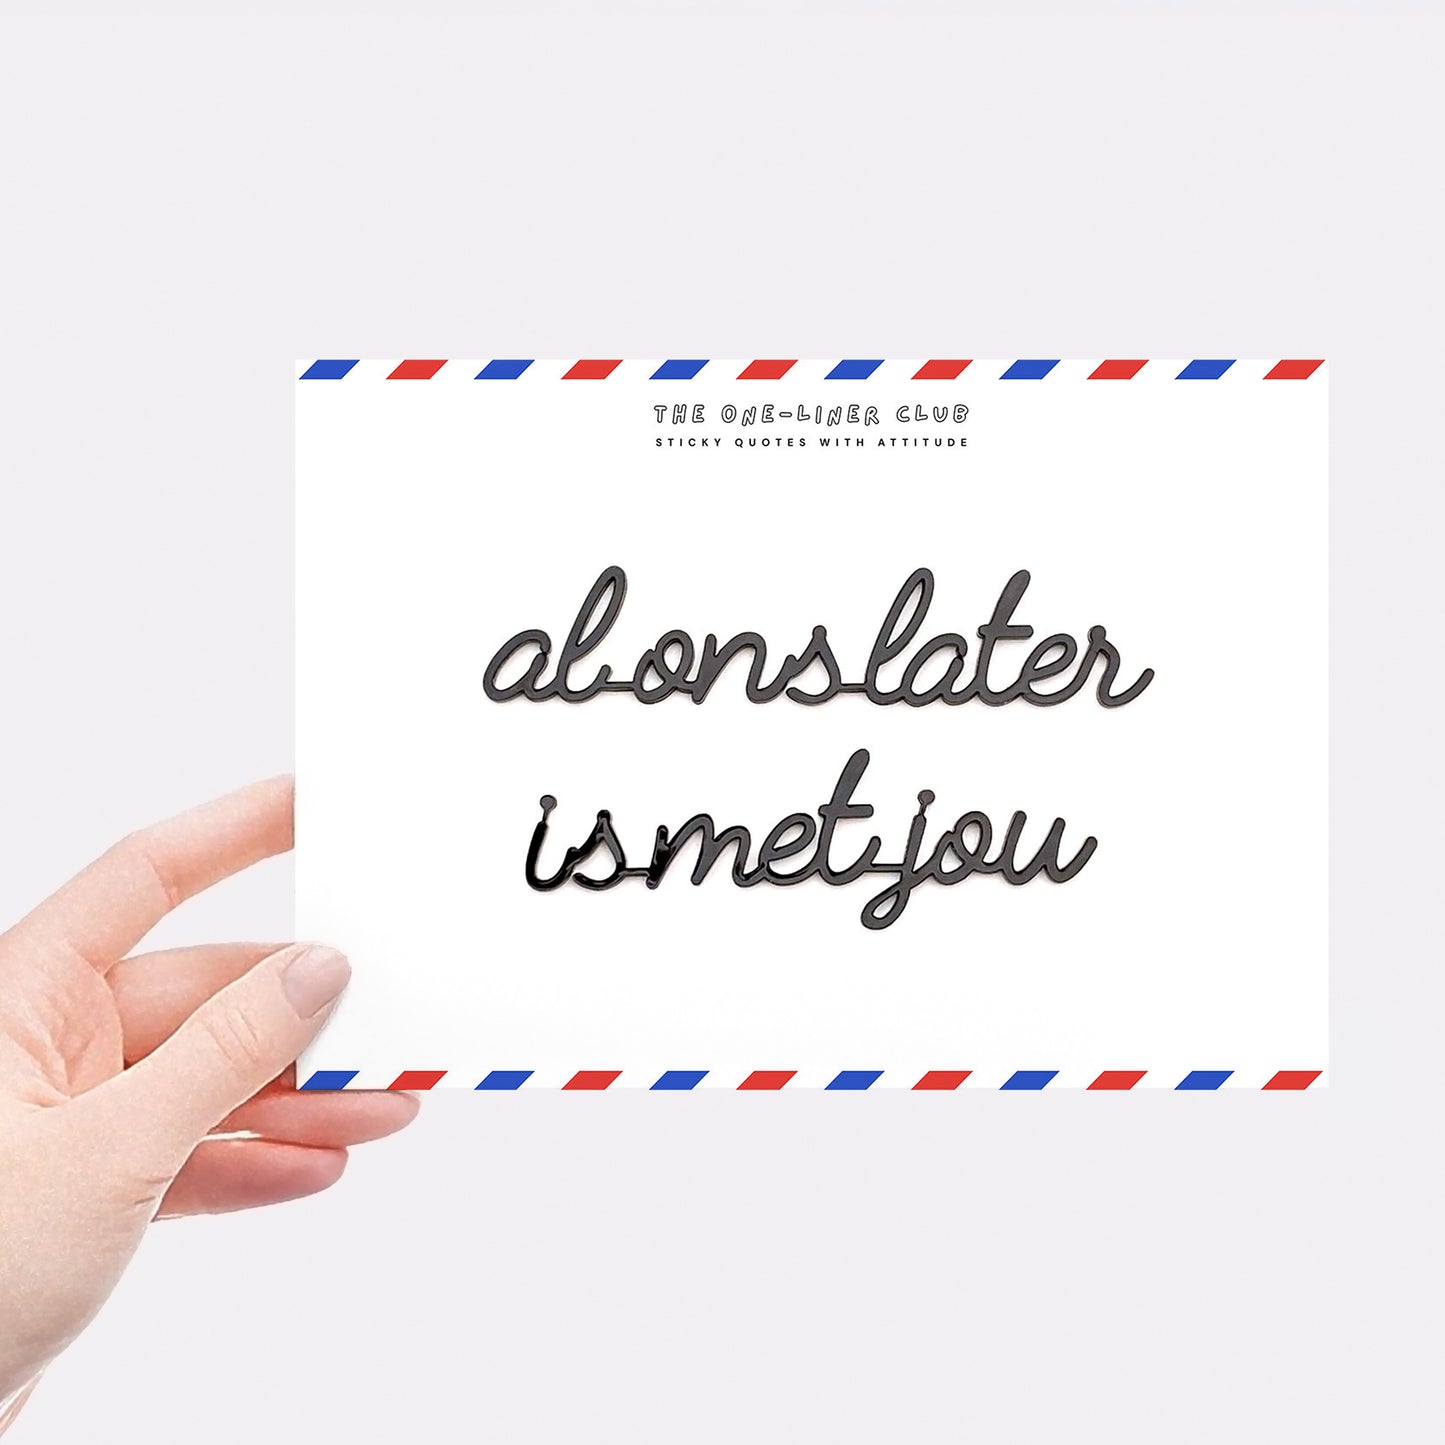 THE ONE-LINER CLUB
STICKY QUOTES WITH ATTITUDE
al ons later
is met jou